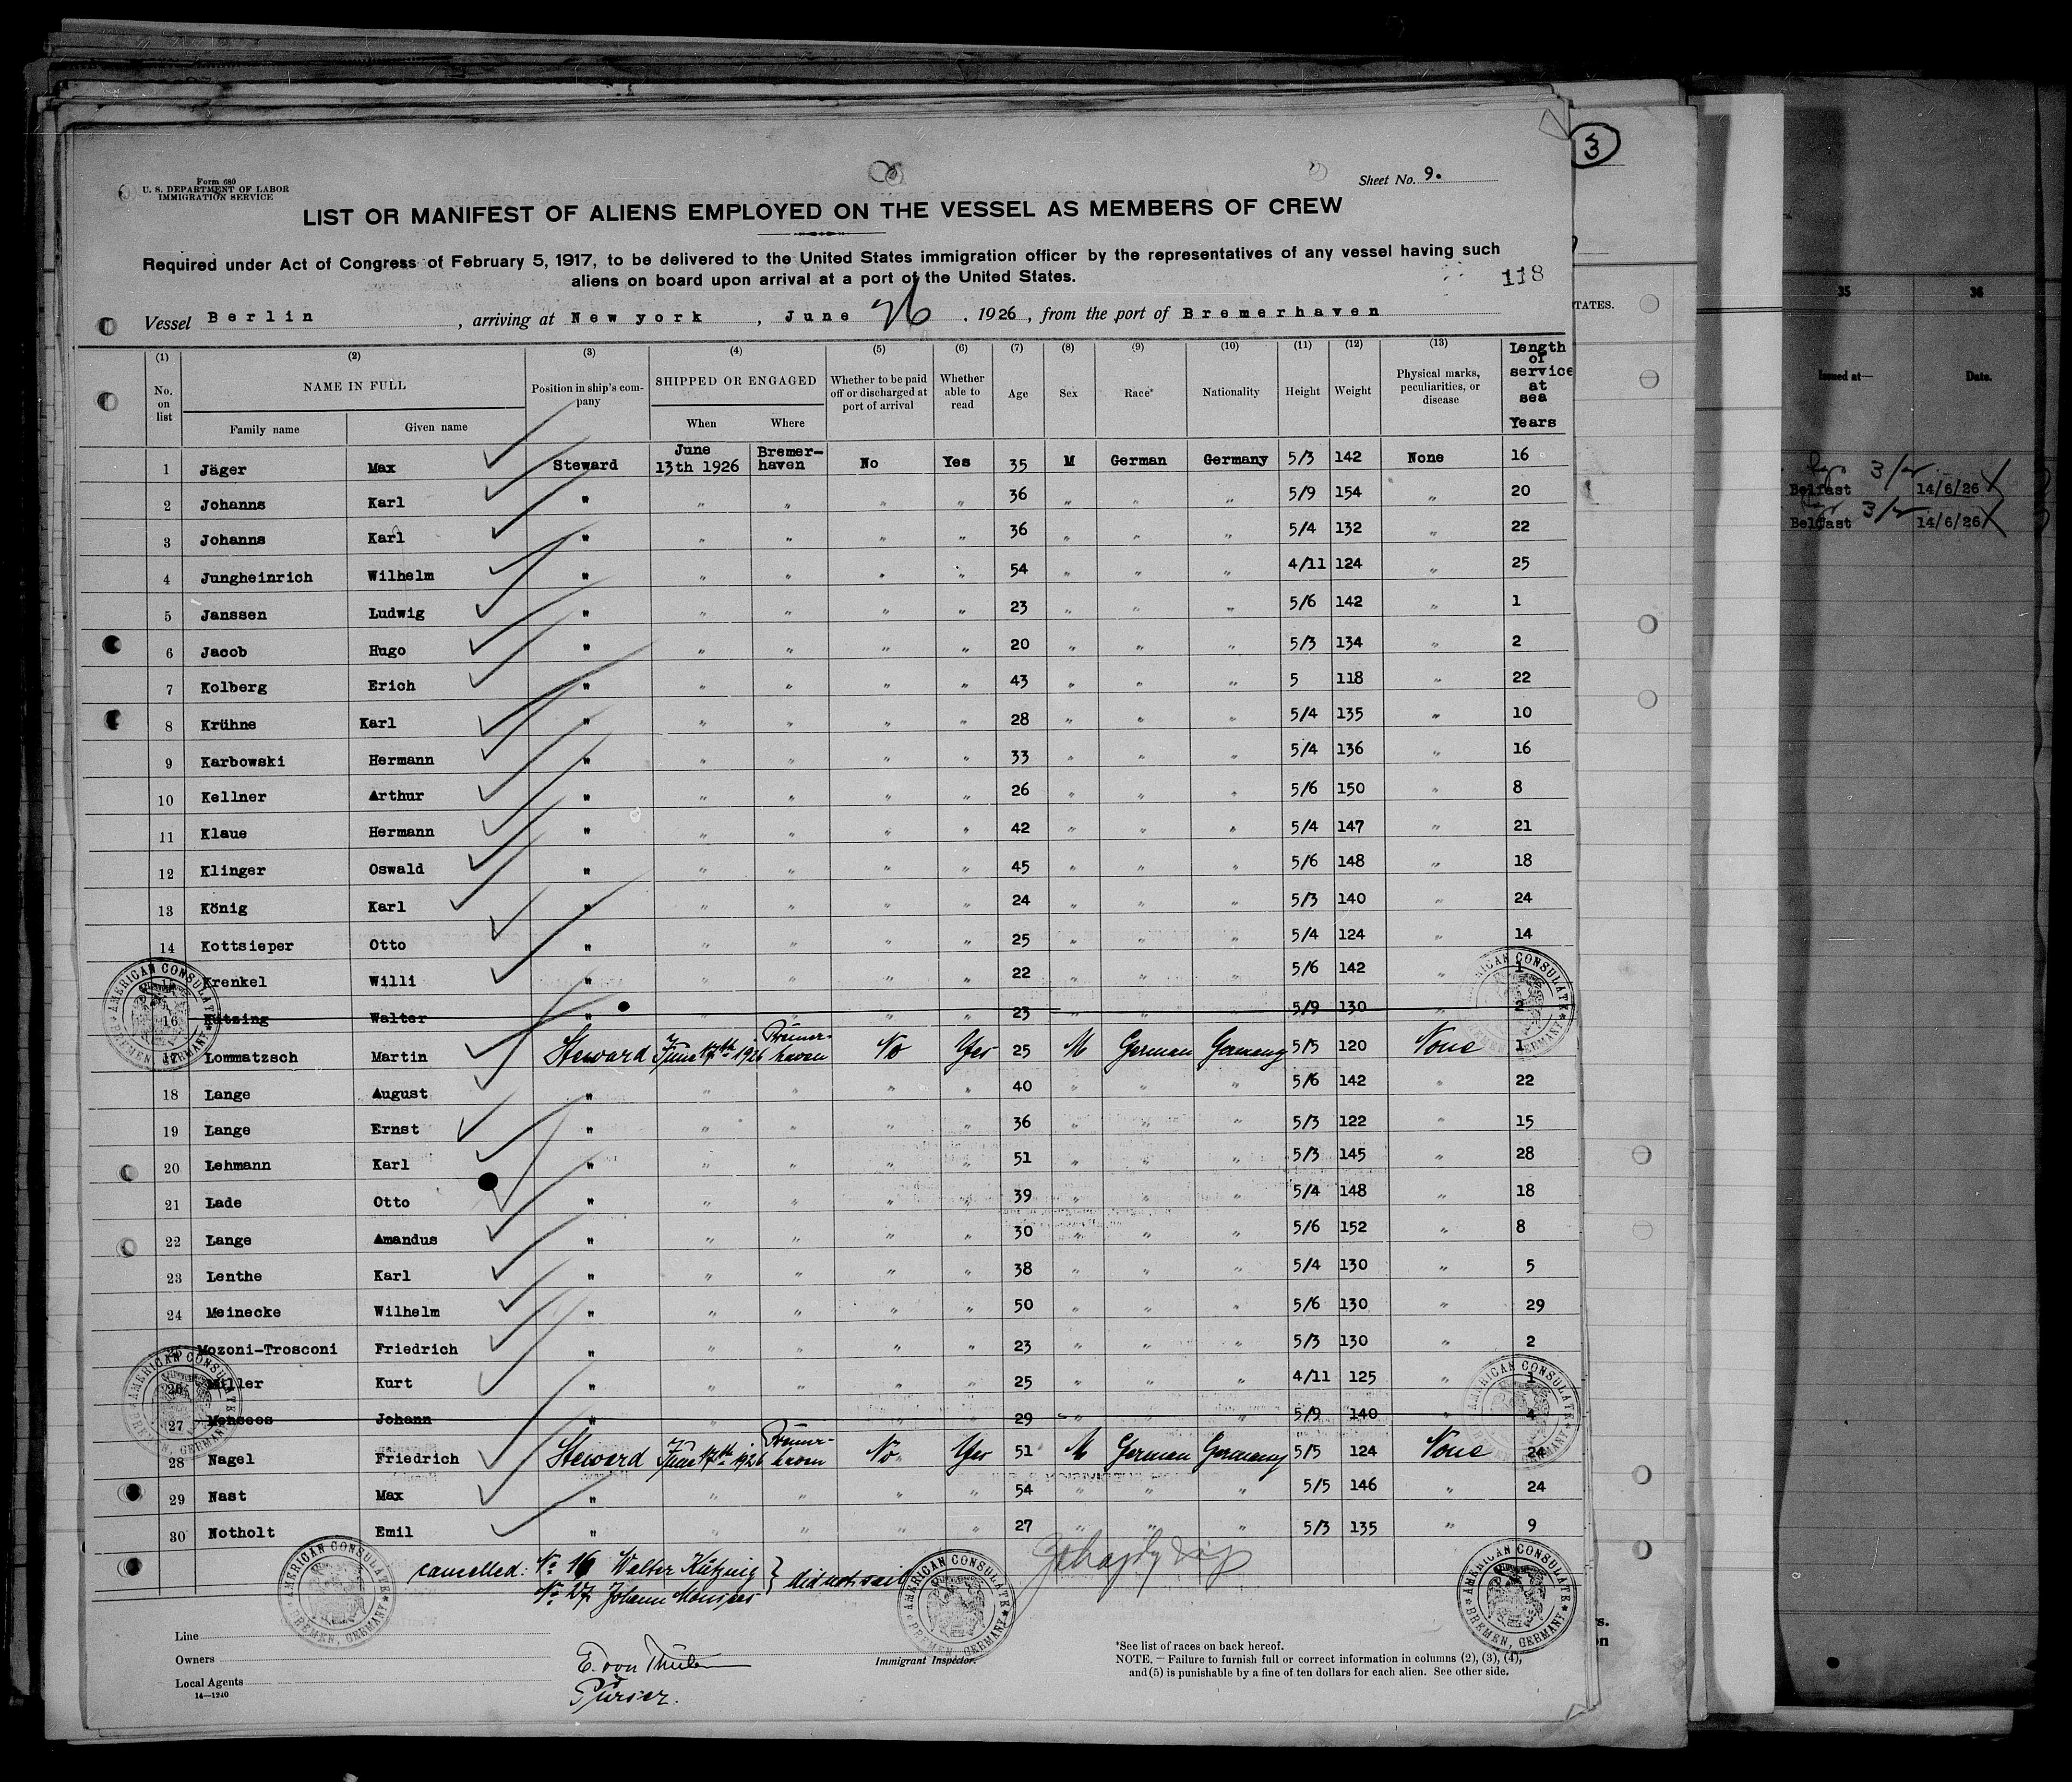 3
Form 680
U. S. DEPARTMENT OF LABOR
IMMIGRATION SERVICE
Sheet No. 9.
LIST OR MANIFEST OF ALIENS EMPLOYED ON THE VESSEL AS MEMBERS OF CREW
Required under Act of Congress of February 5, 1917, to be delivered to the United States immigration officer by the representatives of any vessel having such
aliens on board upon arrival at a port of the United States.
118
Vessel Berlin, arriving at New york, June 26, 1926, from the port of Bremerhaven
TATES.
(1) (2) (3) (4) (5) (6) (7) (8) (9) (10) (11) (12) (13) Length of service at sea Years
No. on list NAME IN FULL Position in ship's company SHIPPED OR ENGAGED Whether to be paid off or discharged at port of arrival Whether able to read Age Sex Race* Nationality Height Weight Physical marks, peculiarities, or disease
Family name Given name When Where
1 Jäger Max Steward June 13th 1926 Bremer-haven No Yes 35 M German Germany 5/3 142 None 16
2 Johanns Karl " " " " " 36 " " " 5/9 154 " 20
3 Johanns Karl " " " " " 36 " " " 5/4 132 " 22
4 Jungheinrich Wilhelm " " " " " 54 " " " 4/11 124 " 25
5 Janssen Ludwig " " " " " 23 " " " 5/6 142 " 1
6 Jacob Hugo " " " " " 20 " " " 5/3 134 " 2
7 Kolberg Erich " " " " " 43 " " " 5 118 " 22
8 Krühne Karl " " " " " 28 " " " 5/4 135 " 10
9 Karbowski Hermann " " " " " 33 " " " 5/4 136 " 16
10 Kellner Arthur " " " " " 26 " " " 5/6 150 " 8
11 Klaue Hermann " " " " " 42 " " " 5/4 147 " 21
12 Klinger Oswald " " " " " 45 " " " 5/6 148 " 18
13 König Karl " " " " " 24 " " " 5/3 140 " 24
14 Kottsieper Otto " " " " " 25 " " " 5/4 124 " 14
15 Krenkel Willi " " " " " 22 " " " 5/6 142 " 1
16 Kützing Walter " " " " " 23 " " " 5/9 130 " 2
17 Lommatzsch Martin Steward June 17th 1926 Bremer-haven No Yes 25 M German Germany 5/5 120 None 1
18 Lange August " " " " " 40 " " " 5/6 142 " 22
19 Lange Ernst " " " " " 36 " " " 5/3 122 " 15
20 Lehmann Karl " " " " " 51 " " " 5/3 145 " 28
21 Lade Otto " " " " " 39 " " " 5/4 148 " 18
22 Lange Amandus " " " " " 30 " " " 5/6 152 " 8
23 Lenthe Karl " " " " " 38 " " " 5/4 130 " 5
24 Meinecke Wilhelm " " " " " 50 " " " 5/6 130 " 29
25 Mozoni-Trosconi Friedrich " " " " " 23 " " " 5/3 130 " 2
26 Müller Kurt " " " " " 25 " " " 4/11 125 " 1
27 Mensees Johann " " " " " 29 " " " 5/9 140 " 4
28 Nagel Friedrich Steward June 17th 1926 Bremer-haven No Yes 51 M German Germany 5/5 124 None 24
29 Nast Max " " " " " 54 " " " 5/5 146 " 24
30 Notholt Emil " " " " " 27 " " " 5/3 135 " 9
cancelled: No 16 Walter Kützing } did not sail
No 27 Johann Mensees
AMERICAN CONSULATE BREMEN, GERMANY
AMERICAN CONSULATE BREMEN, GERMANY
AMERICAN CONSULATE BREMEN, GERMANY
AMERICAN CONSULATE BREMEN, GERMANY
AMERICAN CONSULATE BREMEN, GERMANY
AMERICAN CONSULATE BREMEN, GERMANY
AMERICAN CONSULATE BREMEN, GERMANY
Line
Owners
Local Agents
14—1240
E. von Thülen
Purser.
Immigrant Inspector.
*See list of races on back hereof.
NOTE.—Failure to furnish full or correct information in columns (2), (3), (4),
and (5) is punishable by a fine of ten dollars for each alien. See other side.
35 36
Issued at— Date.
Belfast 14/6/26
Belfast 14/6/26